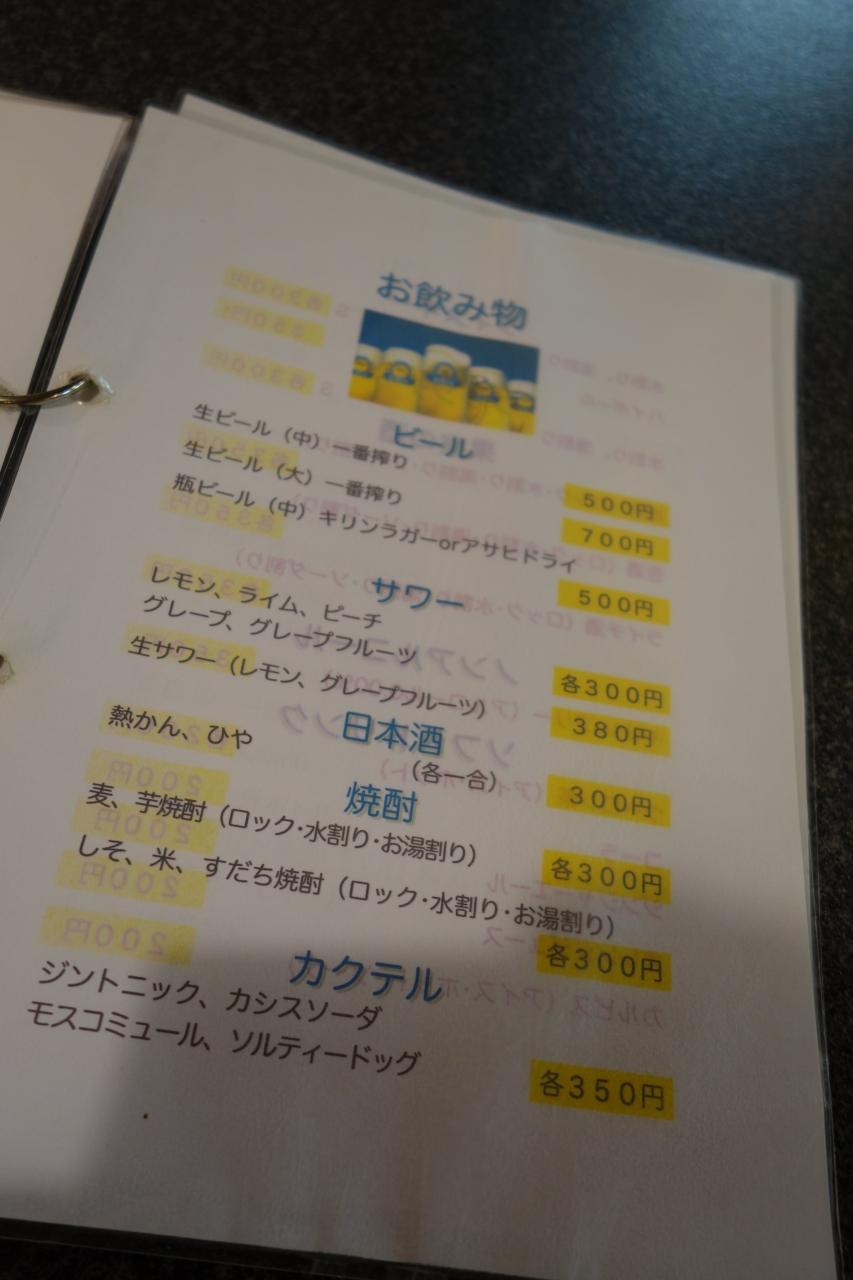 お飲み物
ビール
生ビール（中）一番搾り 500円
生ビール（大）一番搾り 700円
瓶ビール（中）キリンラガーorアサヒドライ 500円
サワー
レモン、ライム、ピーチ
グレープ、グレープフルーツ 各300円
生サワー（レモン、グレープフルーツ） 380円
日本酒
熱かん、ひや （各一合） 300円
焼酎
麦、芋焼酎（ロック･水割り･お湯割り） 各300円
しそ、米、すだち焼酎（ロック･水割り･お湯割り） 各300円
カクテル
ジントニック、カシスソーダ
モスコミュール、ソルティードッグ 各350円